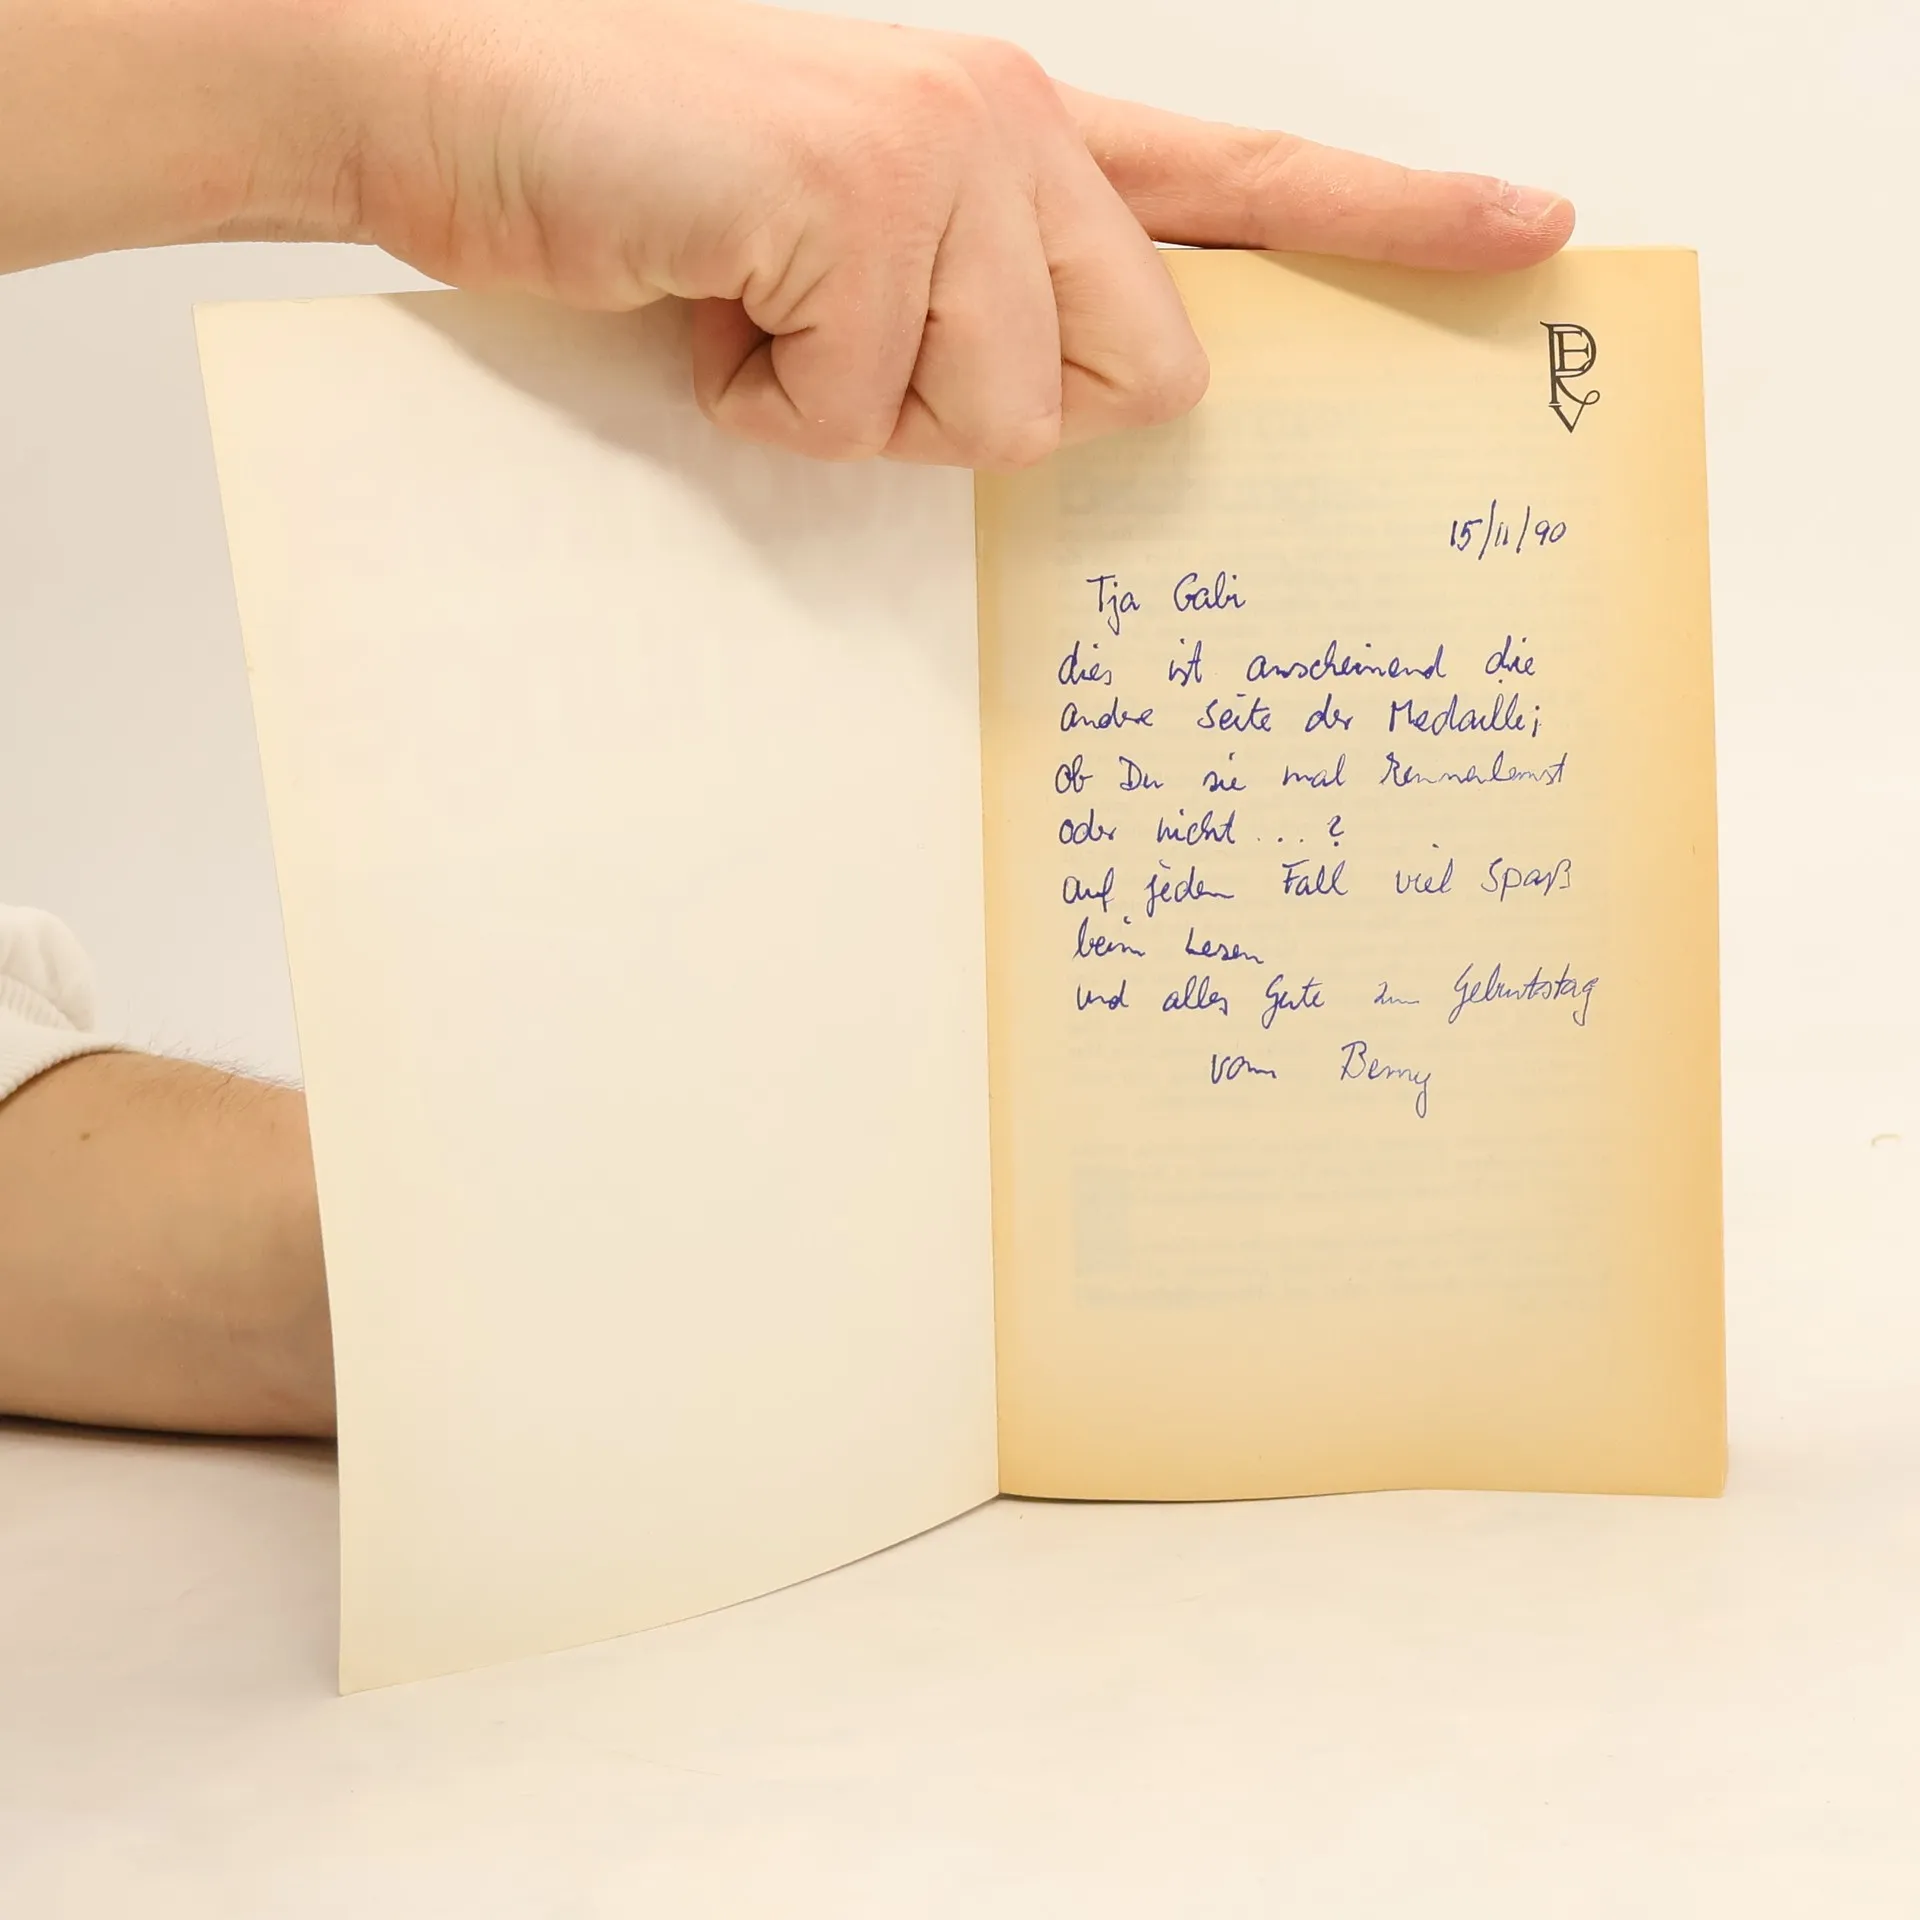 PERV
15/11/90
Tja Gabi
dies ist anscheinend die
andere Seite der Medaille;
ob Du sie mal kennenlernst
oder nicht ... ?
auf jeden Fall viel Spaß
beim Lesen
und alles Gute zum Geburtstag
vom Benny